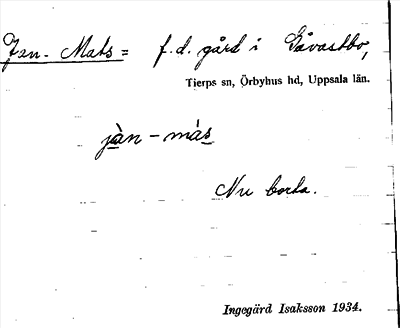 Jan-Mats = f.d. gård i Gåvastbo,
Tierps sn, Örbyhus hd, Uppsala län.
jàn - más
Nu borta.
Ingegärd Isaksson 1934.